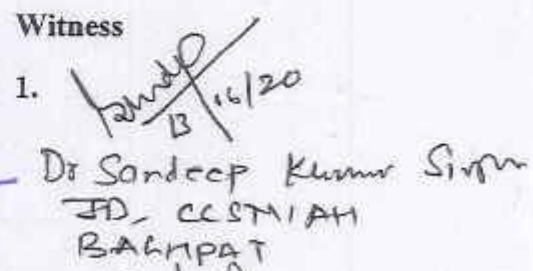 Witness
1. 13/06/20
Dr Sandeep Kumar Singh
JD, CCSNIAH
BAGHPAT